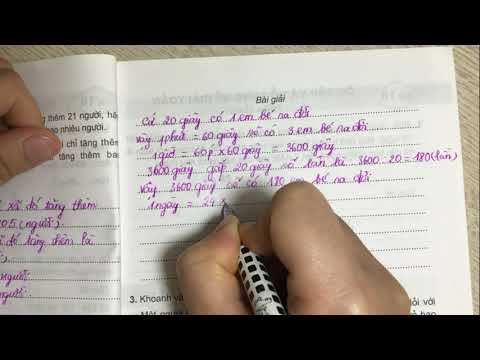 g thêm 21 người, hã
ao nhiêu người.
i chỉ tăng thêm
tăng thêm ba
xã đó tăng thêm
205 (người)
đó tăng thêm là
người
người.
Bài giải
Cứ 20 giây có 1 em bé ra đời
Vậy 1 phút = 60 giây sẽ có 3 em bé ra đời
1 giờ = 60 p x 60 giây = 3600 giây
3600 giây gấp 20 giây số lần là 3600 : 20 = 180 (lần)
Vậy 3600 giây sẽ có 180 em bé ra đời
1 ngày = 24 x
3. Khoanh và
lỗi với
Một người
ả bao